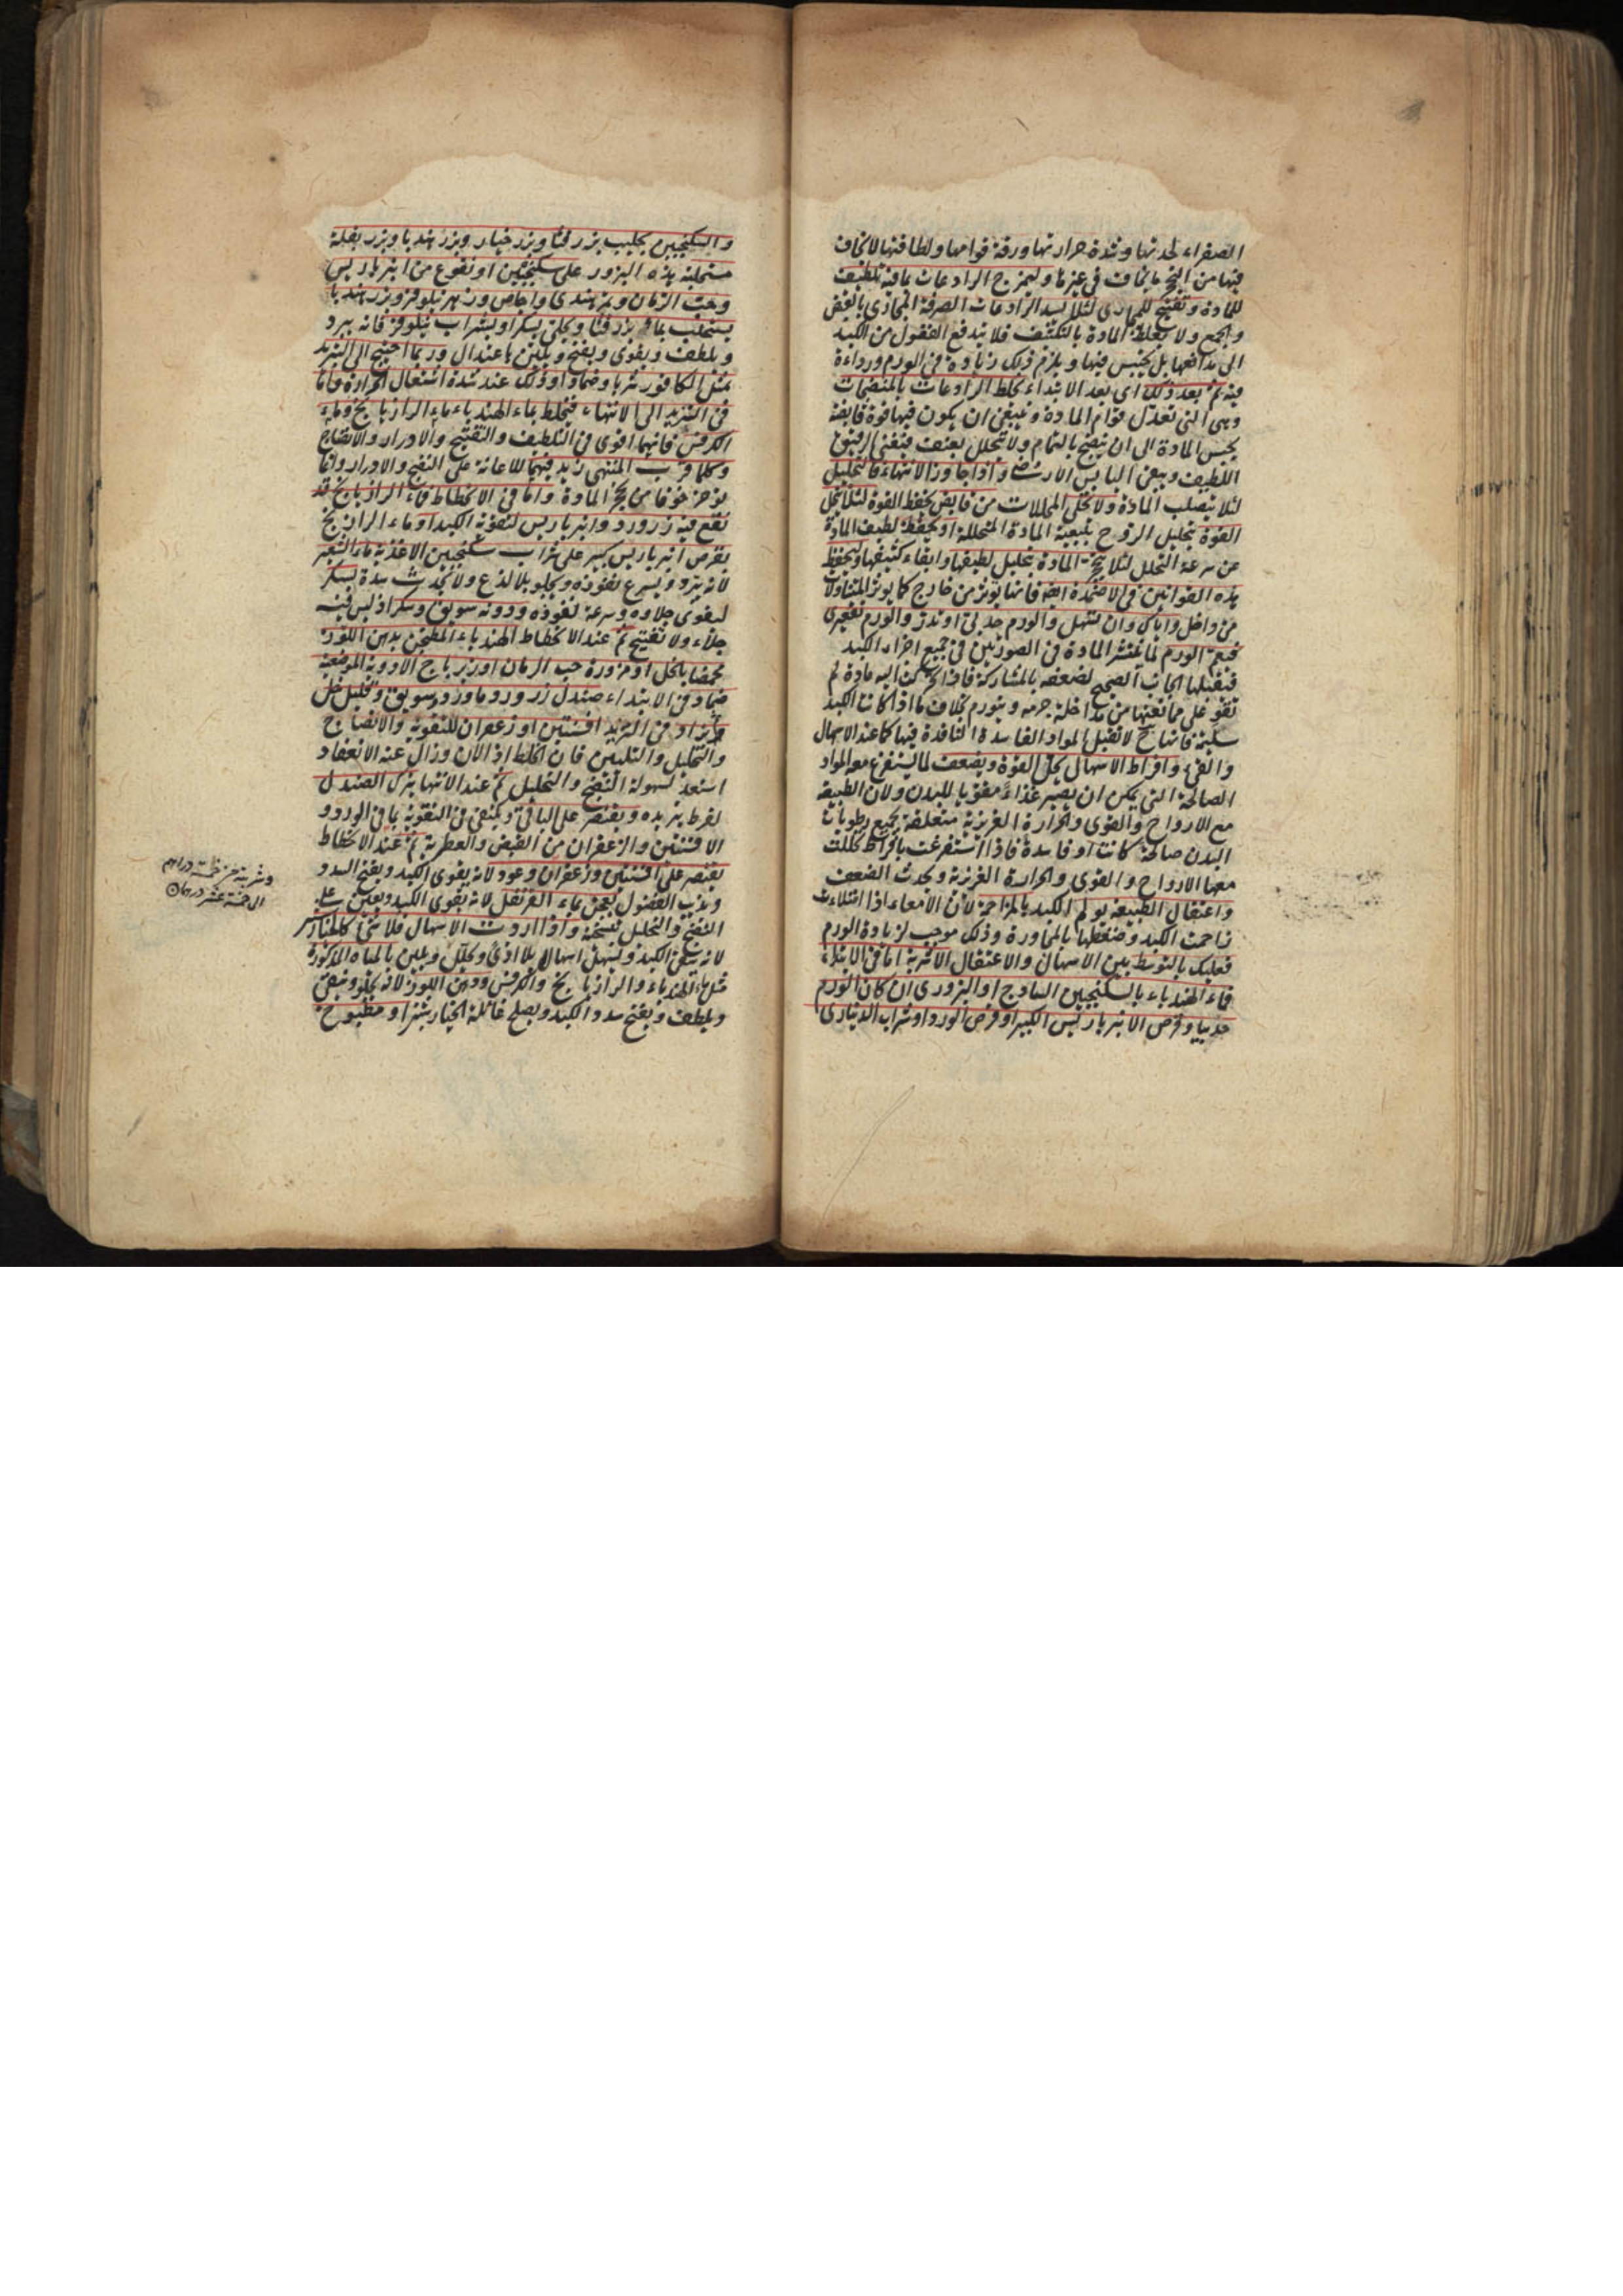 الصفراء لحدتها وشدة حرارتها ورقة قوامها ولطافتها لا يخاف
فيها من التحجر ما يخاف في غيرها وليمزج الرادعات بما فيه تلطيف
للمادة وتفتيح للمجاري لئلا يسد الرادعات الصرفة المجاري بالقبض
والجمع ولا يغلظ المادة بالتكثيف فلا يندفع الفضول من الكبد
الى مدافعها بل يحتبس فيها ويلزم ذلك زيادة في الورم ورداءة
فيه ثم بعد ذلك اى بعد الابتداء يخلط الرادعات بالمنضجات
وهي التي تعدل قوام المادة وينبغي ان يكون فيها قوة قابضة
يحبس المادة الى ان ينضج بالتمام ولا يتحلل بعنف فيفنى الرقيق
اللطيف ويبقى اليابس الارضى واذا جاوز الانتهاء فالتحليل
لئلا يتصلب المادة ولا تخلى المحللات من قابض يحفظ القوة لئلا تنحل
القوة بتحليل الروح بتبعية المادة المتحللة او يحفظ لطيف المادة
عن سرعة التحلل لئلا يتحجر المادة بتحليل لطيفها وابقاء كثيفها وليحفظ
هذه القوانين في الاضمدة ايضا فانها يوثر من خارج كما يوثر المتناولات
من داخل واياك وان تسهل والورم حدبى او تدر والورم تقعيرى
فيعم الورم لما ينتشر المادة في الصورتين في جميع اجزاء الكبد
فيقبلها الجانب الصحيح لضعفه بالمشاركة فاذا تحركت اليه مادة لم
تقو على ممانعتها من مداخلة جرمه ويتورم بخلاف ما اذا كانت الكبد
سليمة فانها ح لا تقبل المواد الفاسدة النافذة فيها كما عند الاسهال
والقيء وافراط الاسهال يحل القوة ويضعف لما يستفرغ معه المواد
الصالحة التي يمكن ان يصير غذاء مقويا للبدن ولان الطبيعة
مع الارواح والقوى والحرارة الغريزية متعلقة بجميع رطوبات
البدن صالحة كانت او فاسدة فاذا استفرغت بافراط تحللت
معها الارواح والقوى والحرارة الغريزية ويحدث الضعف
واعتقال الطبيعة يولم الكبد بالمزاحمة لان الامعاء اذا امتلاءت
زاحمت الكبد وضغطها بالمجاورة وذلك موجب لزيادة الورم
فعليك بالتوسط بين الاسهال والاعتقال الاشربة اما في الابتداء
فماء الهندباء بالسكنجبين الساذج او البزورى ان كان الورم
حدبيا وقرص الانبرباريس الكبير او قرص الورد او شراب الدينارى
والسكنجبين بحليب بزر قثا وبزر خيار وبزر هندبا وبزر بقلة
مستحلبة هذه البزور على سكنجبين او نقوع من انبرباريس
وحب الرمان وتمر هندى واجاص وزهر نيلوفر وبزر هندبا
يستحلب بمائه بزر قثا ويحلى بسكر او بشراب نيلوفر فانه يبرد
ويلطف ويقوى ويفتح ويلين باعتدال وربما احتيج الى التبريد
بمثل الكافور شربا وضمادا وذلك عند شدة اشتعال الحرارة واما
في التزيد الى الانتهاء فيخلط بماء الهندباء ماء الرازيانج وماء
الكرفس فانهما اقوى في التلطيف والتفتيح والادرار والانضاج
وكلما قرب المنتهى زيد فيهما للاعانة على النضج والادرار وانما
يوخر خوفا من تحجر المادة واما في الانحطاط فماء الرازيانج قد
نقع فيه زرورد وانبرباريس لتقوية الكبد او ماء الرازيانج
بقرص انبرباريس كبير على شراب سكنجبين الاغذية ماء الشعير
لانه يبرد ويسرع نفوذه ويجلو بلا لذع ولا يحدث سدة بسكر
ليقوى جلاوه وسرعة نفوذه ودونه سويق وسكر اذ ليس فيه
جلاء ولا تفتيح ثم عند الانحطاط الهندباء المطجن بدهن اللوز
محمضا بالخل او مزورة حب الرمان او زيرباج الادوية الموضعية
ضماد في الابتداء صندل زرورد وماورد وسويق وقليل خل
ويزاد في التزيد افسنتين او زعفران للتقوية والانضاج
والتحليل والتليين فان الخلط اذا لان وزال عنه الانعقاد
استعد لسهولة النضج والتحليل ثم عند الانتهاء يترك الصندل
لفرط تبريده ويقتصر على الباقي ويكتفى في التقوية بما في الورد و
الافسنتين والزعفران من القبض والعطرية ثم عند الانحطاط
يقتصر على افسنتين وزعفران وعود لانه يقوى الكبد ويفتح السدد
ويذيب الفضول يعجن بماء القرنفل لانه يقوى الكبد ويعين على
النضج والتحليل بتسخينه واذا اردت الاسهال فلا شئ كالخيارشنبر
لانه ينقى الكبد ويسهل اسهالا بلا اذى ويحلل ويلين بالمياه المذكورة
مثل ماء الهندباء والرازيانج والكرفس ودهن اللوز لانه يجلو وينقى
ويلطف ويفتح سدد الكبد ويصلح غائلة الخيارشنبر او مطبوخ
وشربته من خمسة دراهم
الى خمسة عشر درهما